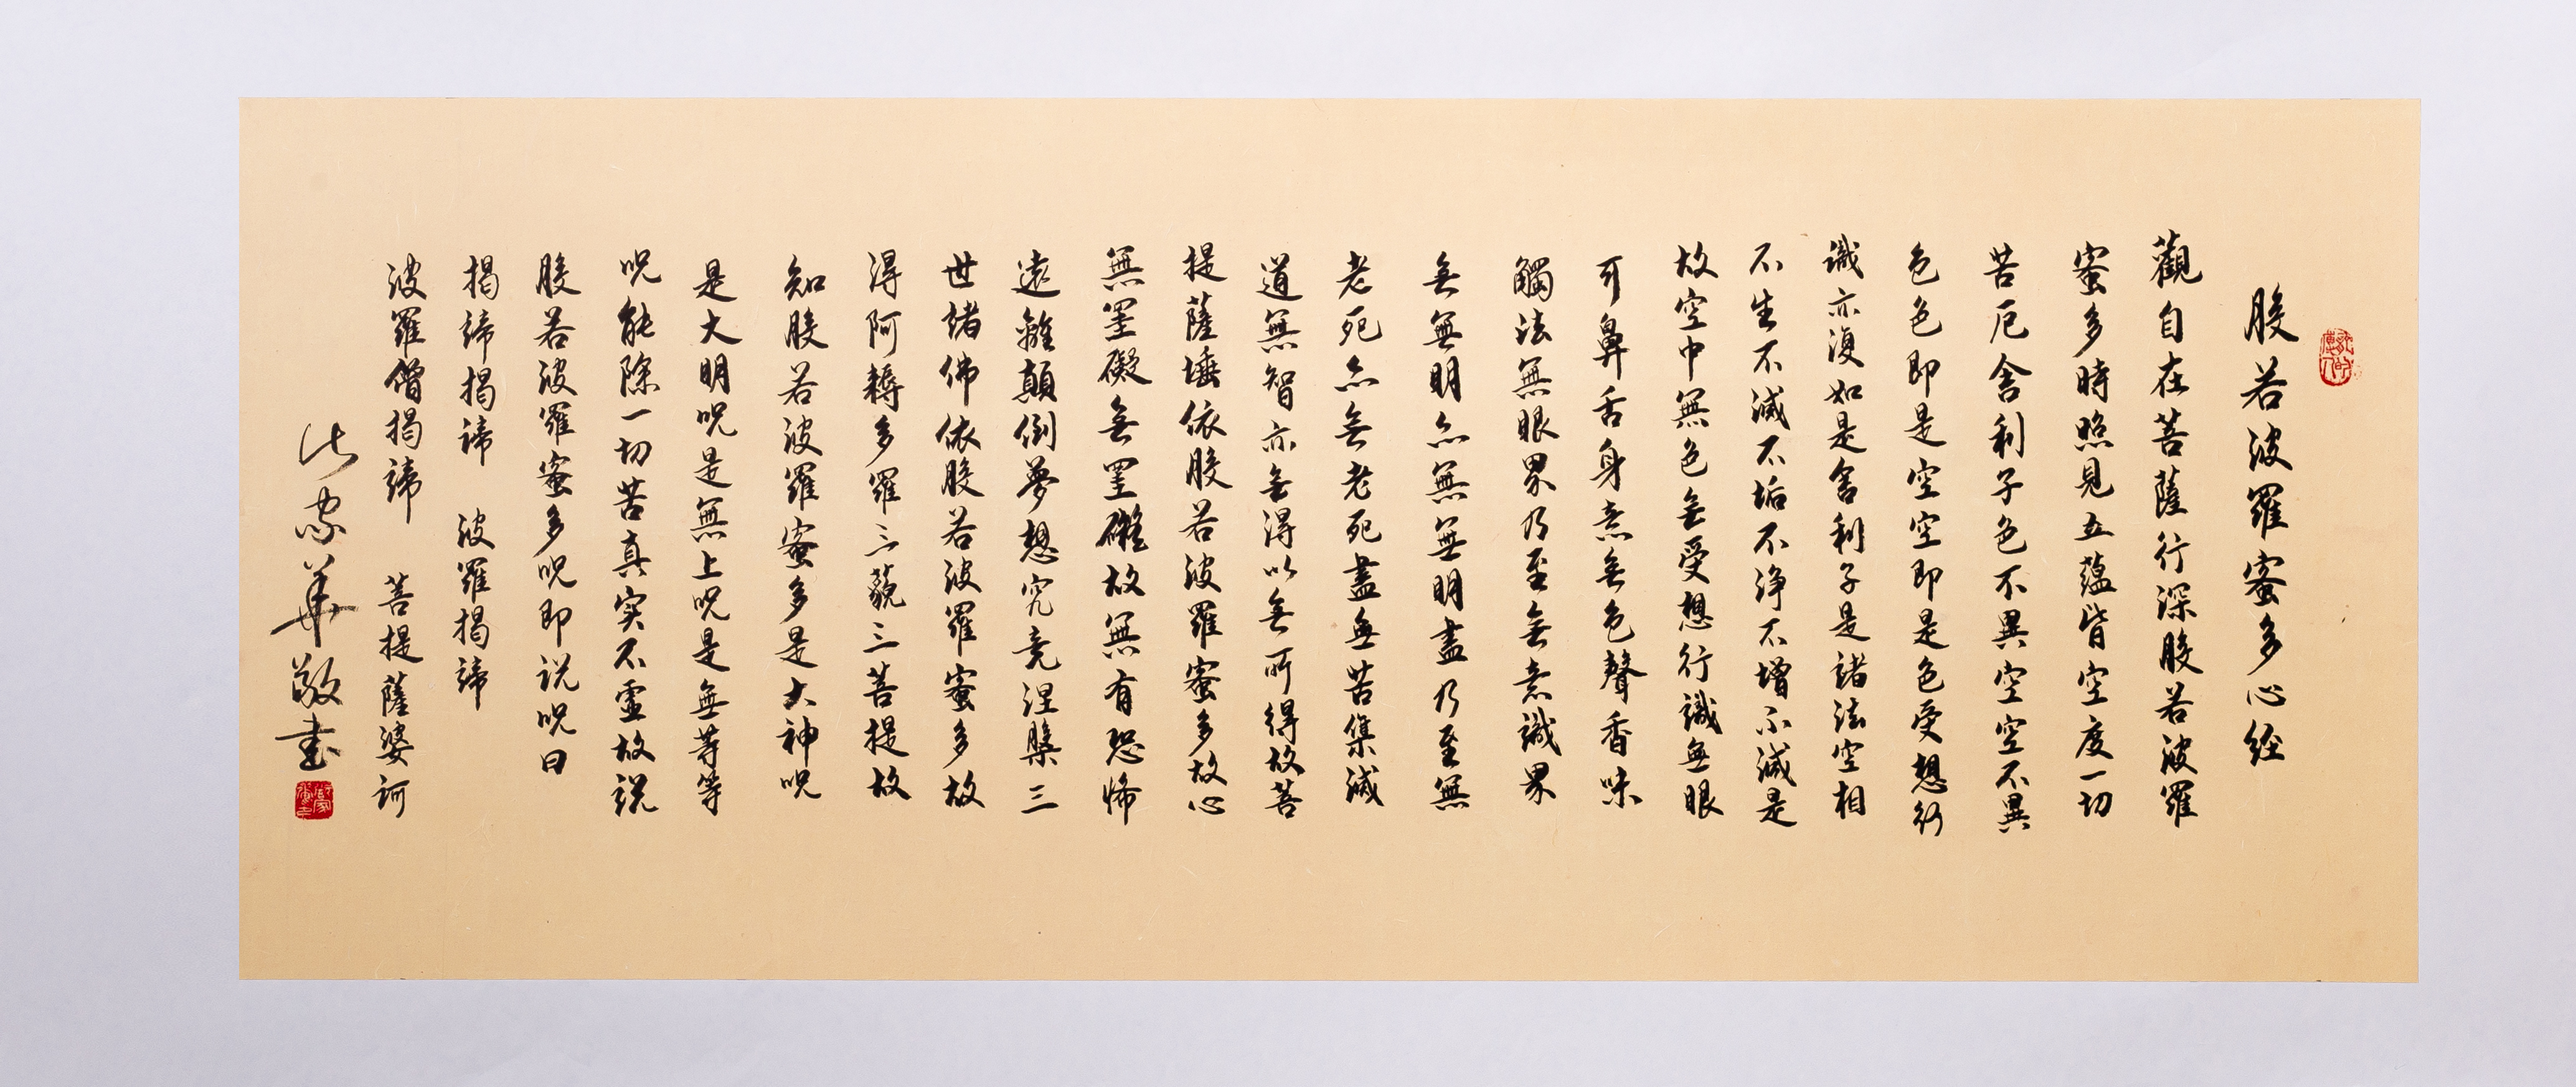 般若波羅蜜多心經
觀自在菩薩行深般若波羅
蜜多時照見五蘊皆空度一切
苦厄舍利子色不異空空不異
色色即是空空即是色受想行
識亦復如是舍利子是諸法空相
不生不滅不垢不淨不增不減是
故空中無色無受想行識無眼
耳鼻舌身意無色聲香味
觸法無眼界乃至無意識界
無無明亦無無明盡乃至無
老死亦無老死盡無苦集滅
道無智亦無得以無所得故菩
提薩埵依般若波羅蜜多故心
無罣礙無罣礙故無有恐怖
遠離顛倒夢想究竟涅槃三
世諸佛依般若波羅蜜多故
得阿耨多羅三藐三菩提故
知般若波羅蜜多是大神咒
是大明咒是無上咒是無等等
咒能除一切苦真实不虛故說
般若波羅蜜多咒即說咒曰
揭諦揭諦 波羅揭諦
波羅僧揭諦 菩提薩婆訶
家華敬書